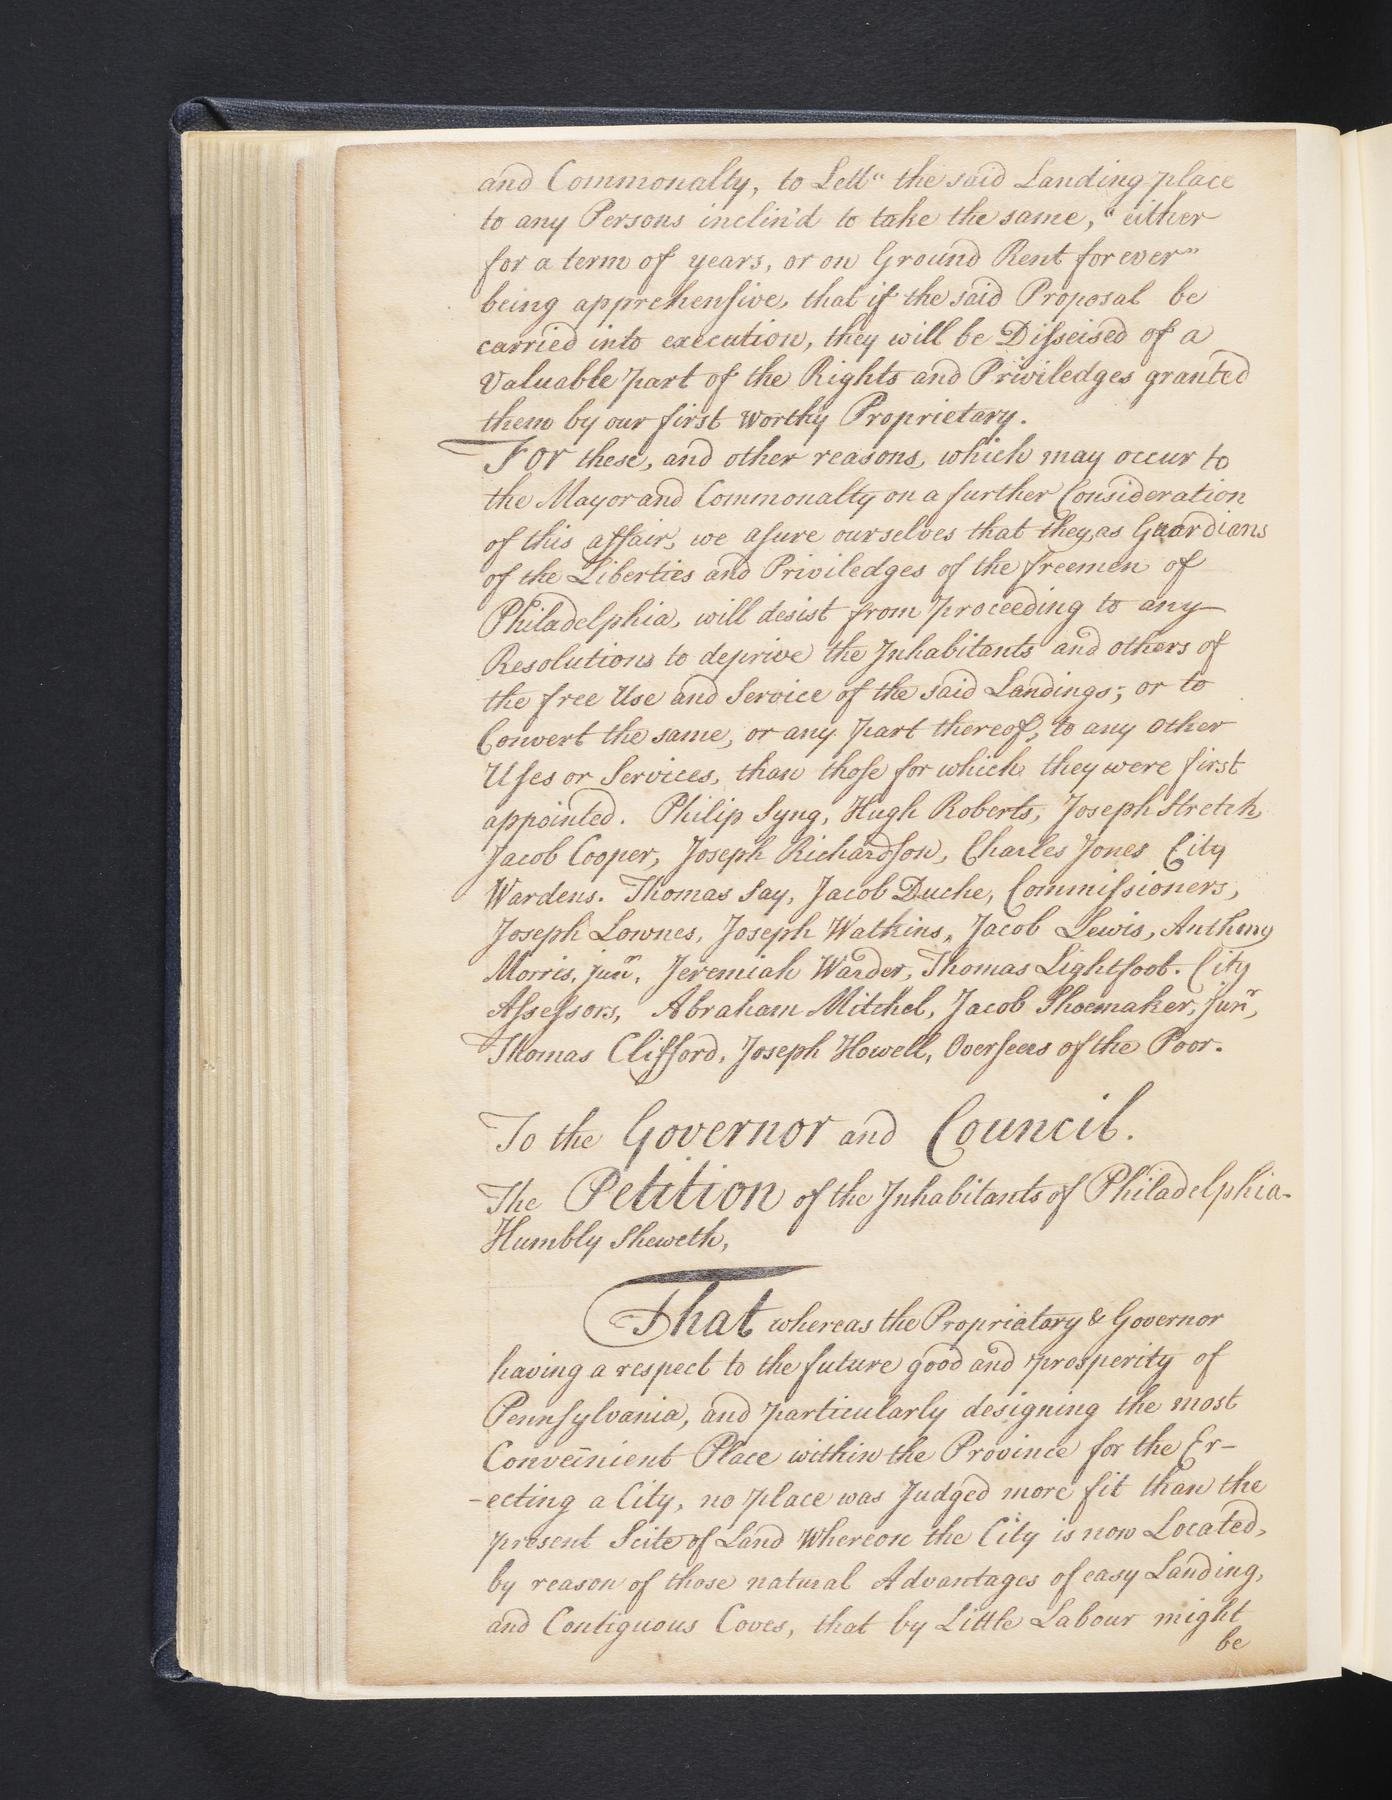 and Commonalty, to Lett" the said Landing place
to any Persons inclin'd to take the same, "either
for a term of years, or on Ground Rent for ever"
being apprehensive, that if the said Proposal be
carried into execution, they will be Disseised of a
Valuable part of the Rights and Priviledges granted
them by our first Worthy Proprietary.
For these, and other reasons, which may occur to
the Mayor and Commonalty on a further Consideration
of this affair, we asure ourselves that they, as Guardians
of the Liberties and Priviledges of the freemen of
Philadelphia, will desist from proceeding to any
Resolutions to deprive the Inhabitants and others of
the free Use and Service of the said Landings; or to
Convert the same, or any part thereof, to any other
Uses or Services, than those for which they were first
appointed. Philip Syng, Hugh Roberts, Joseph Stretch,
Jacob Cooper, Joseph Richardson, Charles Jones City
Wardens. Thomas Say, Jacob Duche, Commissioners,
Joseph Lownes, Joseph Watkins, Jacob Lewis, Anthony
Morris, junr, Jeremiah Warder, Thomas Lightfoot. City
Assessors, Abraham Mitchel, Jacob Shoemaker, junr,
Thomas Clifford, Joseph Howell, Overseers of the Poor.
To the Governor and Council.
The Petition of the Inhabitants of Philadelphia-
Humbly Sheweth,
That whereas the Propriatary & Governor
having a respect to the future good and prosperity of
Pennsylvania, and particularly designing the most
Conveinient Place within the Province for the Er-
-ecting a City, no place was Judged more fit than the
present Scite of Land Whereon the City is now Located,
by reason of those natural Advantages of easy Landing,
and Contiguous Coves, that by Little Labour might
be